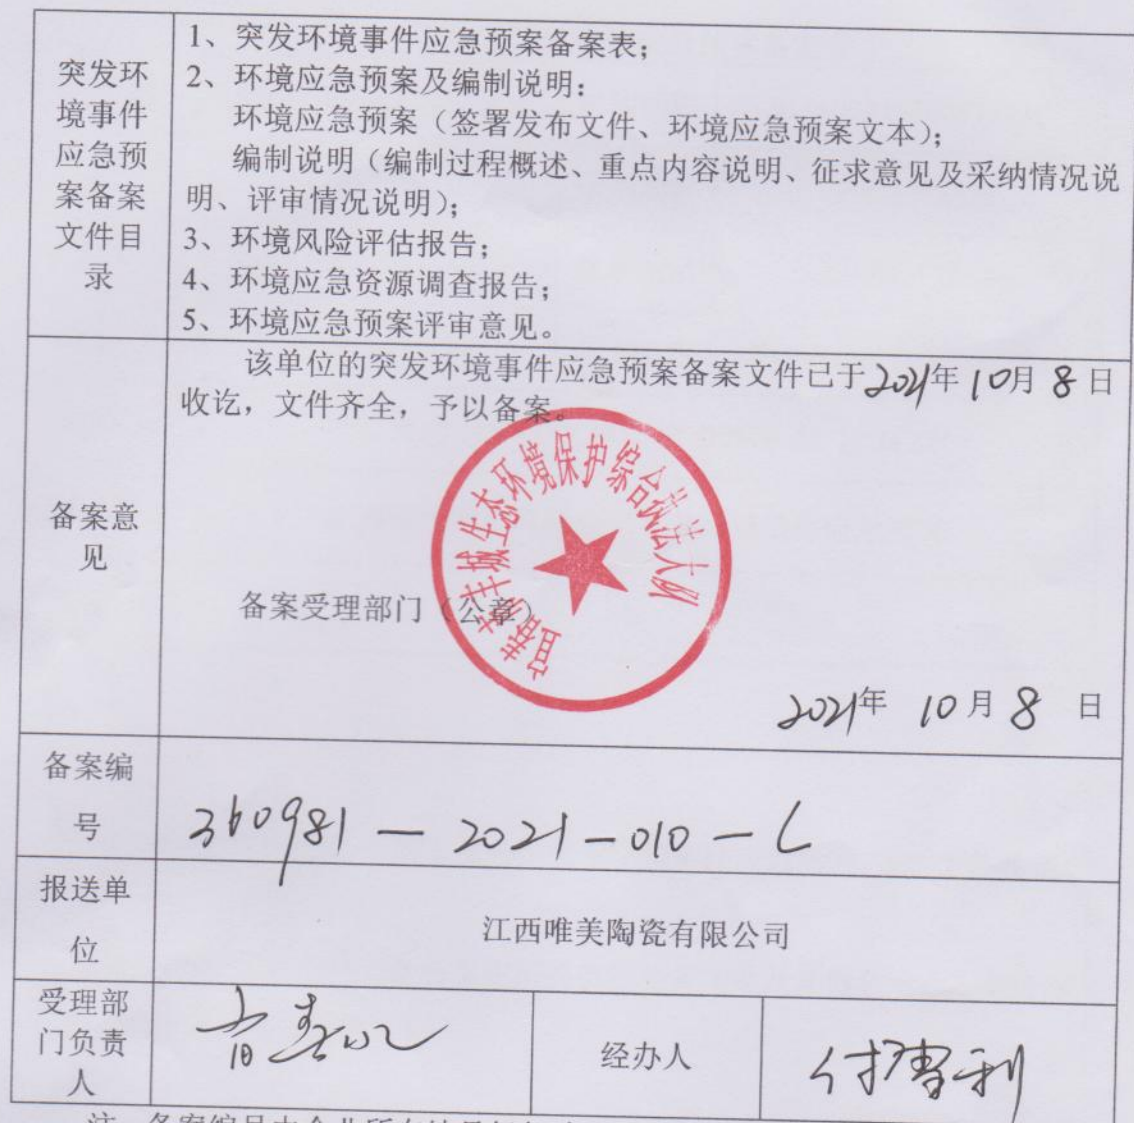 突发环
境事件
应急预
案备案
文件目
录
1、突发环境事件应急预案备案表；
2、环境应急预案及编制说明：
环境应急预案（签署发布文件、环境应急预案文本）；
编制说明（编制过程概述、重点内容说明、征求意见及采纳情况说
明、评审情况说明）；
3、环境风险评估报告；
4、环境应急资源调查报告；
5、环境应急预案评审意见。
备案意
见
该单位的突发环境事件应急预案备案文件已于2021年10月8日
收讫，文件齐全，予以备案。
宜春市丰城生态环境保护综合执法大队
备案受理部门（公章）
2021年 10月8 日
备案编
号
360981-2021-010-L
报送单
位
江西唯美陶瓷有限公司
受理部
门负责
人
经办人